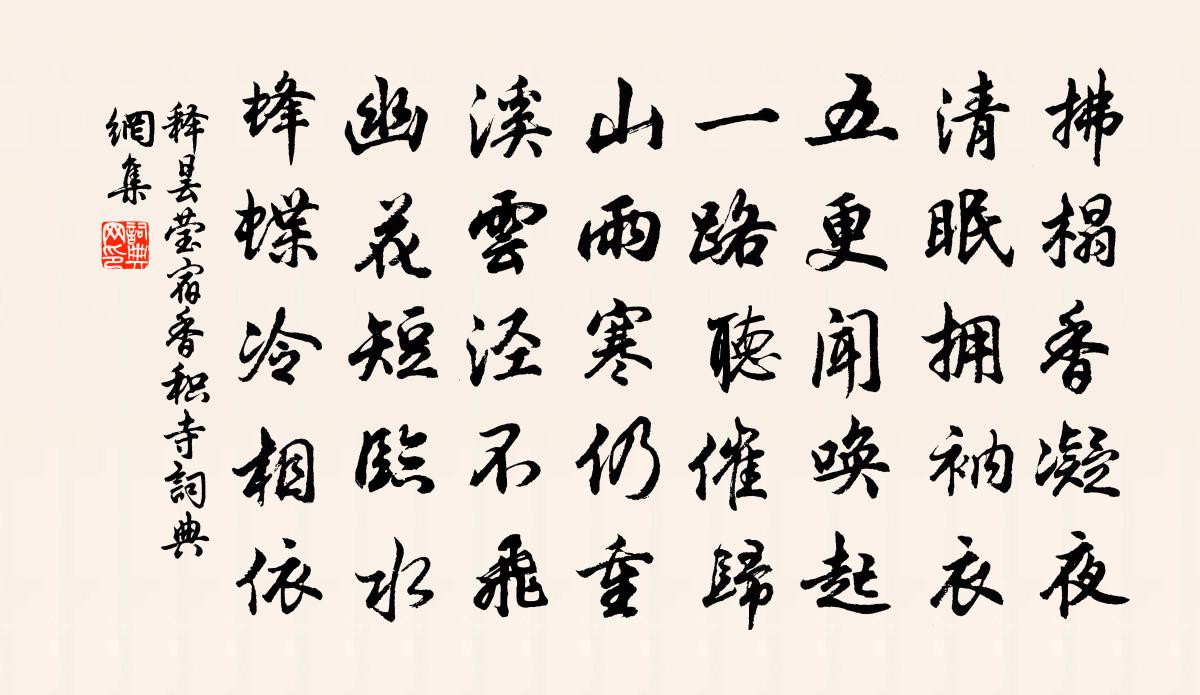 拂榻香凝夜
清眠拥衲衣
五更闻唤起
一路聽催歸
山雨寒仍重
溪雲溼不飛
幽花短臨水
蜂蝶冷相依
释昙莹宿香积寺詞典
網集
詞典网印